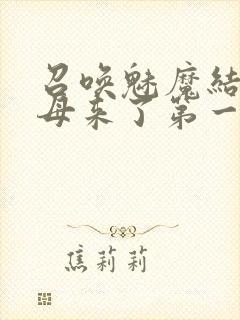 召唤魅魔结
母来了第一
焦莉莉